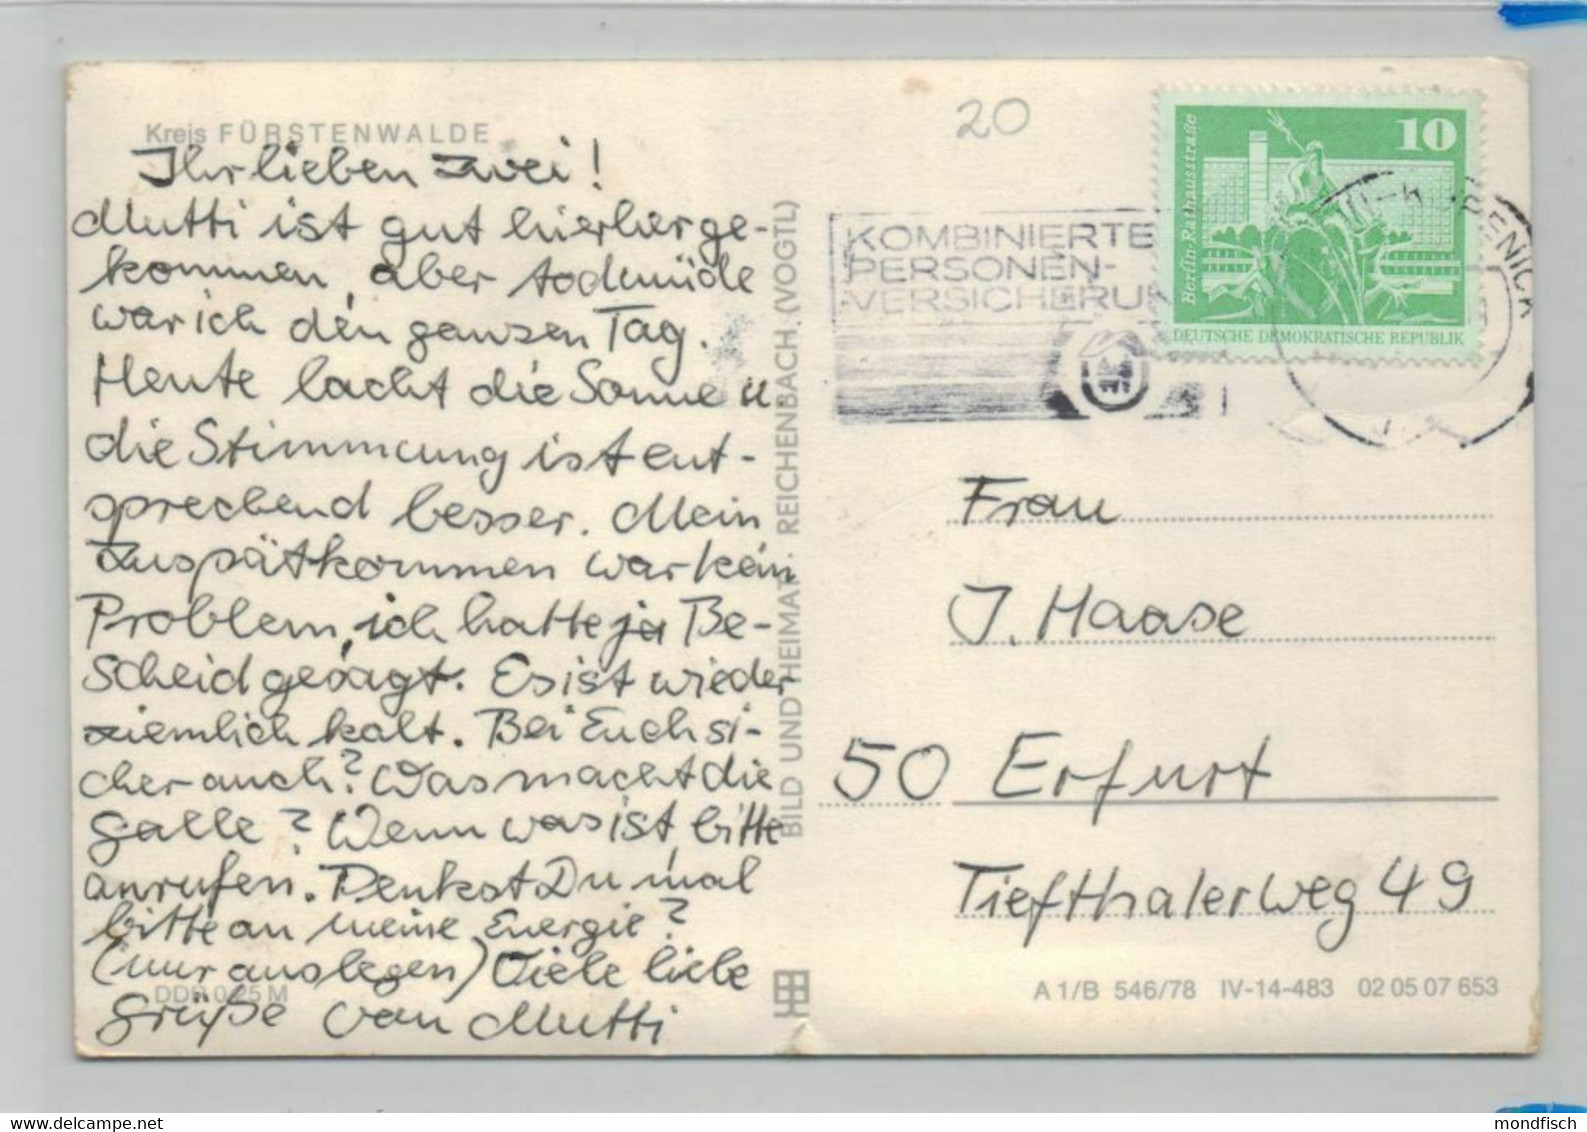 Kreis FÜRSTENWALDE
Ihr lieben zwei!
Mutti ist gut hierherge-
kommen, aber todmüde
war ich den ganzen Tag.
Heute lacht die Sonne u.
die Stimmung ist ent-
sprechend besser. Mein
Zuspätkommen war kein
Problem, ich hatte ja Be-
scheid gesagt. Es ist wieder
ziemlich kalt. Bei Euch si-
cher auch? Was macht die
Galle? Wenn was ist bitte
anrufen. Denkst Du mal
bitte an meine Energie?
(nur auslegen) Viele liebe
Grüße von Mutti
DDR 0,25 M
BILD UND HEIMAT · REICHENBACH (VOGTL)
20
KOMBINIERTE
PERSONEN-
VERSICHERUN
10
Berlin-Rathausstraße
DEUTSCHE DEMOKRATISCHE REPUBLIK
Frau
J. Haase
50 Erfurt
Tiefthalerweg 49
A 1/B 546/78 IV-14-483 02 05 07 653
mondfisch